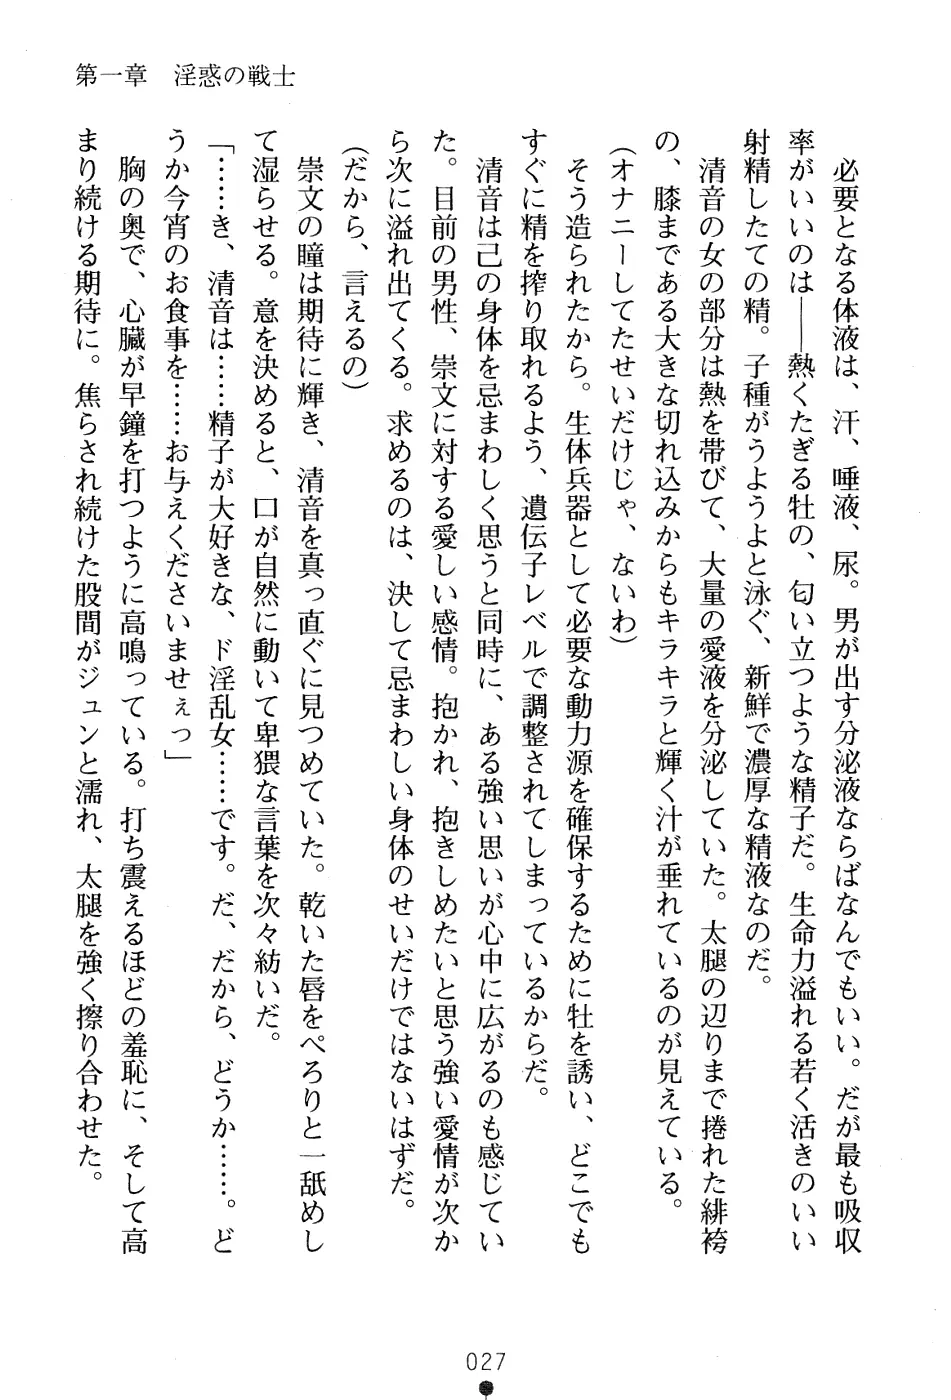 第一章　淫惑の戦士
　必要となる体液は、汗、唾液、尿。男が出す分泌液ならばなんでもいい。だが最も吸収
率がいいのは――熱くたぎる牡の、匂い立つような精子だ。生命力溢れる若く活きのいい
射精したての精。子種がうようよと泳ぐ、新鮮で濃厚な精液なのだ。
　清音の女の部分は熱を帯びて、大量の愛液を分泌していた。太腿の辺りまで捲れた緋袴
の、膝まである大きな切れ込みからもキラキラと輝く汁が垂れているのが見えている。
（オナニーしてたせいだけじゃ、ないわ）
　そう造られたから。生体兵器として必要な動力源を確保するために牡を誘い、どこでも
すぐに精を搾り取れるよう、遺伝子レベルで調整されてしまっているからだ。
　清音は己の身体を忌まわしく思うと同時に、ある強い思いが心中に広がるのも感じてい
た。目前の男性、崇文に対する愛しい感情。抱かれ、抱きしめたいと思う強い愛情が次か
ら次に溢れ出てくる。求めるのは、決して忌まわしい身体のせいだけではないはずだ。
（だから、言えるの）
　崇文の瞳は期待に輝き、清音を真っ直ぐに見つめていた。乾いた唇をぺろりと一舐めし
て湿らせる。意を決めると、口が自然に動いて卑猥な言葉を次々紡いだ。
「……き、清音は……精子が大好きな、ド淫乱女……です。だ、だから、どうか……。ど
うか今宵のお食事を……お与えくださいませぇっ」
　胸の奥で、心臓が早鐘を打つように高鳴っている。打ち震えるほどの羞恥に、そして高
まり続ける期待に。焦らされ続けた股間がジュンと濡れ、太腿を強く擦り合わせた。
027